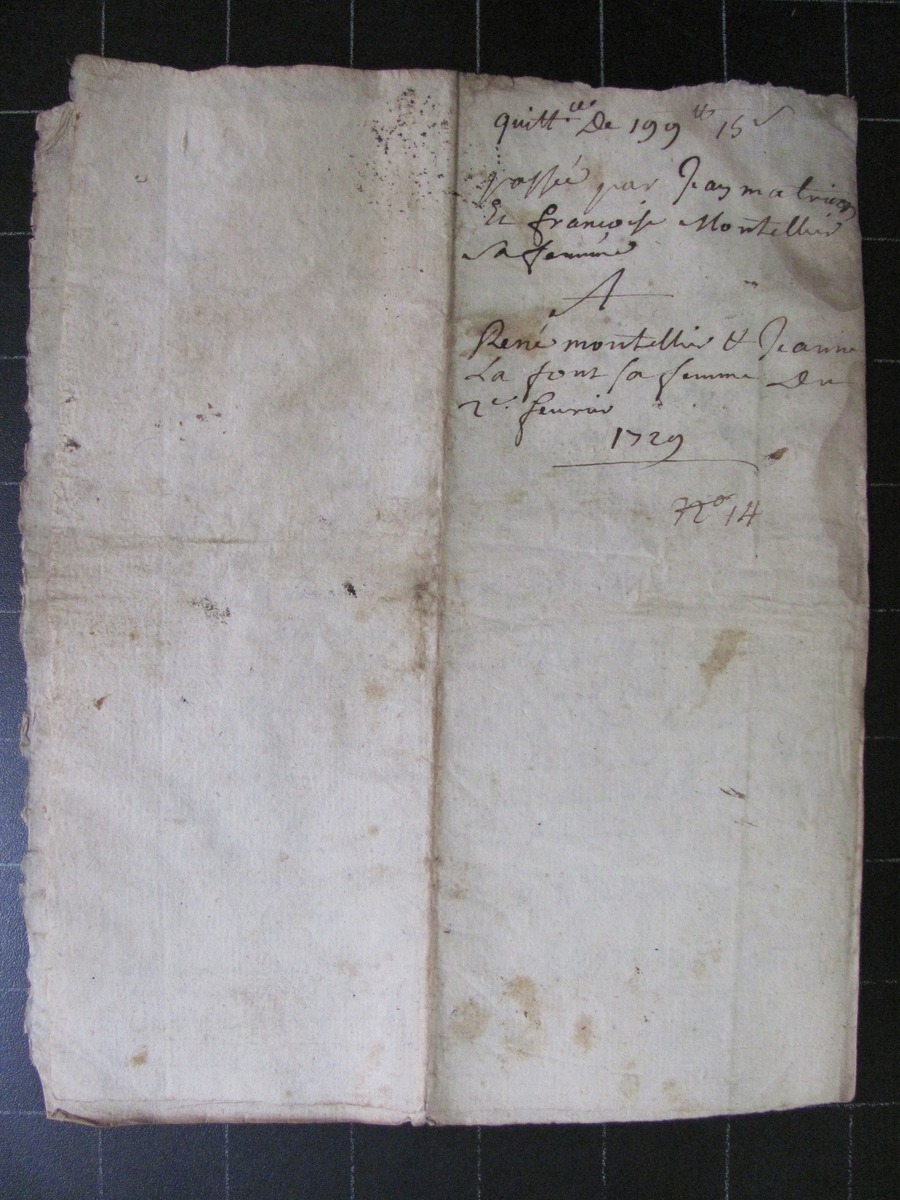 quitt.ce De 199 ₶ 15 s
passée par Jean matricon
Et françoise Montellier
sa femme
A
René montellier & Jeanne
La font sa femme Du
2e. feurier
1729
No 14